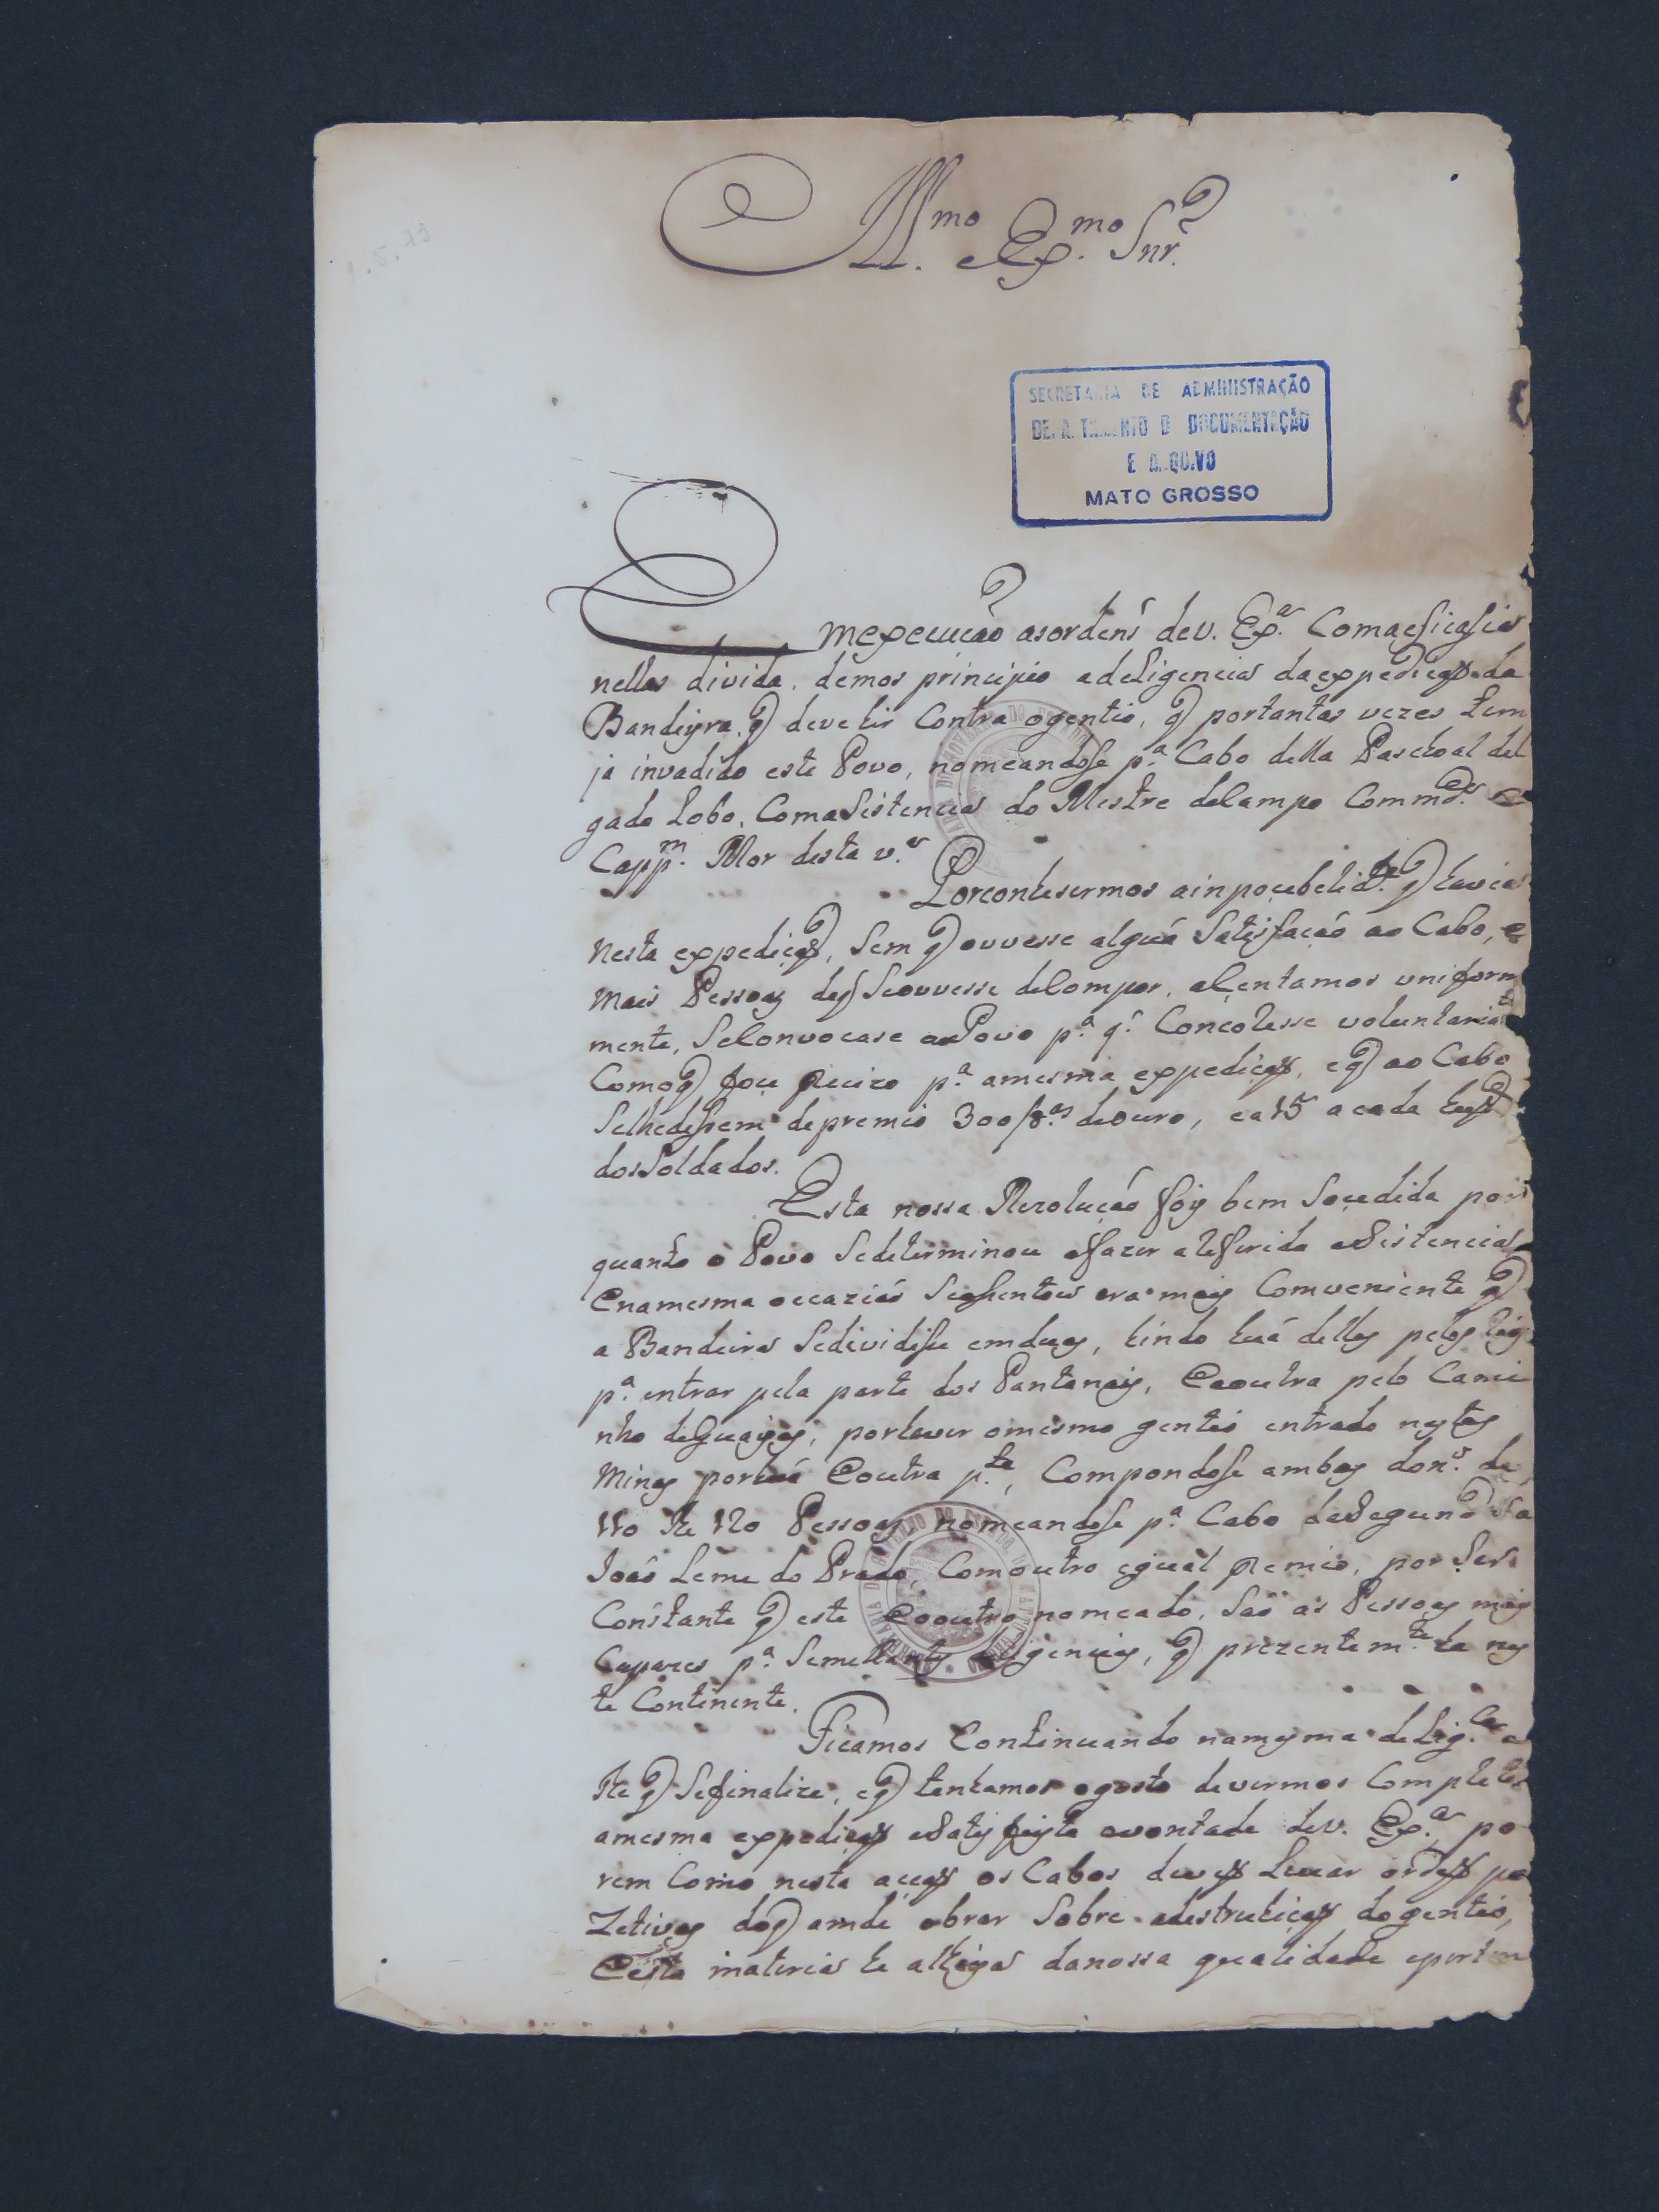 Ill.mo e Ex.mo Snr.
SECRETARIA DE ADMINISTRAÇÃO
DEPARTAMENTO DE DOCUMENTAÇÃO
E ARQUIVO
MATO GROSSO
Emexecução asordens dev. Ex.a Comaeficasia
nellas divida, demos principio adeligencia daexpedição da
Bandeyra, q devehir Contra ogentio, q portantas vezes tem
ja invadido este Povo, nomeandose p.a Cabo della Paschoal del
gado Lobo, Comasistencia do Mestre deCampo Comm.de e
Capp.m Mor desta v.a
Porconhesermos ainpocibelid.e q havia
Nesta expedição, Sem q ouvesse alguá Satisfacaó ao Cabo, e
mais Pessoas deq Seouvesse deCompor, asentamos uniform
mente, SeConvocase oPovo p.a q. Concoresse voluntariam.te
Comoq fou precizo p.a amesma expedição, eq ao Cabo
Selhedessem depremio 300/8.as deouro, ea15 acada hum
dosSoldados.
Esta nossa Rezolucaó foy bem Socedida por
quanto o Povo Sedeterminou afazer aReferida asistencia,
Enamesma occaziaó Seasentou era may Comveniente q
a Bandeira Sedividise emduas, hindo huá dellas pelos Rios
p.a entrar pela parte dos Pantanays, Eaoutra pelo Cami
nho deGuayas, porhaver omesmo gentio entrado nestas
Minas porhuá Eoutra p.te, Compondose ambas do n.o de
110 the 120 Pessoas nomeandose p.a Cabo daSegunda a
Joaó Leme do Prado, Comoutro egual premio, por Ser
Constante q este Eooutro nomeado, Saó as Pessoas mays
Capazes p.a Semelhantes deligencias, q prezentem.te ha nes
te Continente.
Ficamos Continuando namesma delig.ca a
the q Sefinalize, eq tenhamos ogosto devermos Completa
amesma expedição eSatisfeyta avontade dev. Ex.a, po
rem Como nesta acção os Cabos devem Levar ordens po
Zetivas doq amde obrar Sobre adestruhição dogentio,
Eesta materia he alheya danossa qualidade eperten